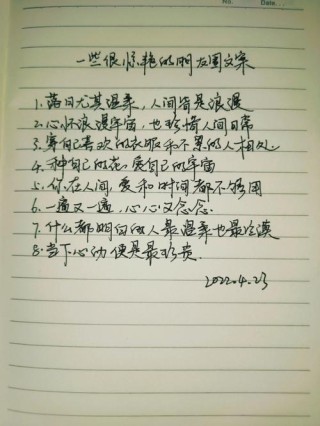 No. Date.
一些很惊艳的朋友圈文案
1.落日尤其温柔,人间皆是浪漫
2.心怀浪漫宇宙,也珍惜人间日常
3.穿自己喜欢的衣服和不累的人相处
4.种自己的花,爱自己的宇宙
5.你在人间,爱和时间都不够用
6.一遍又一遍,心心又念念.
7.什么都明白的人最温柔也最冷漠
8.当下心动便是最珍贵.
2022.4.23